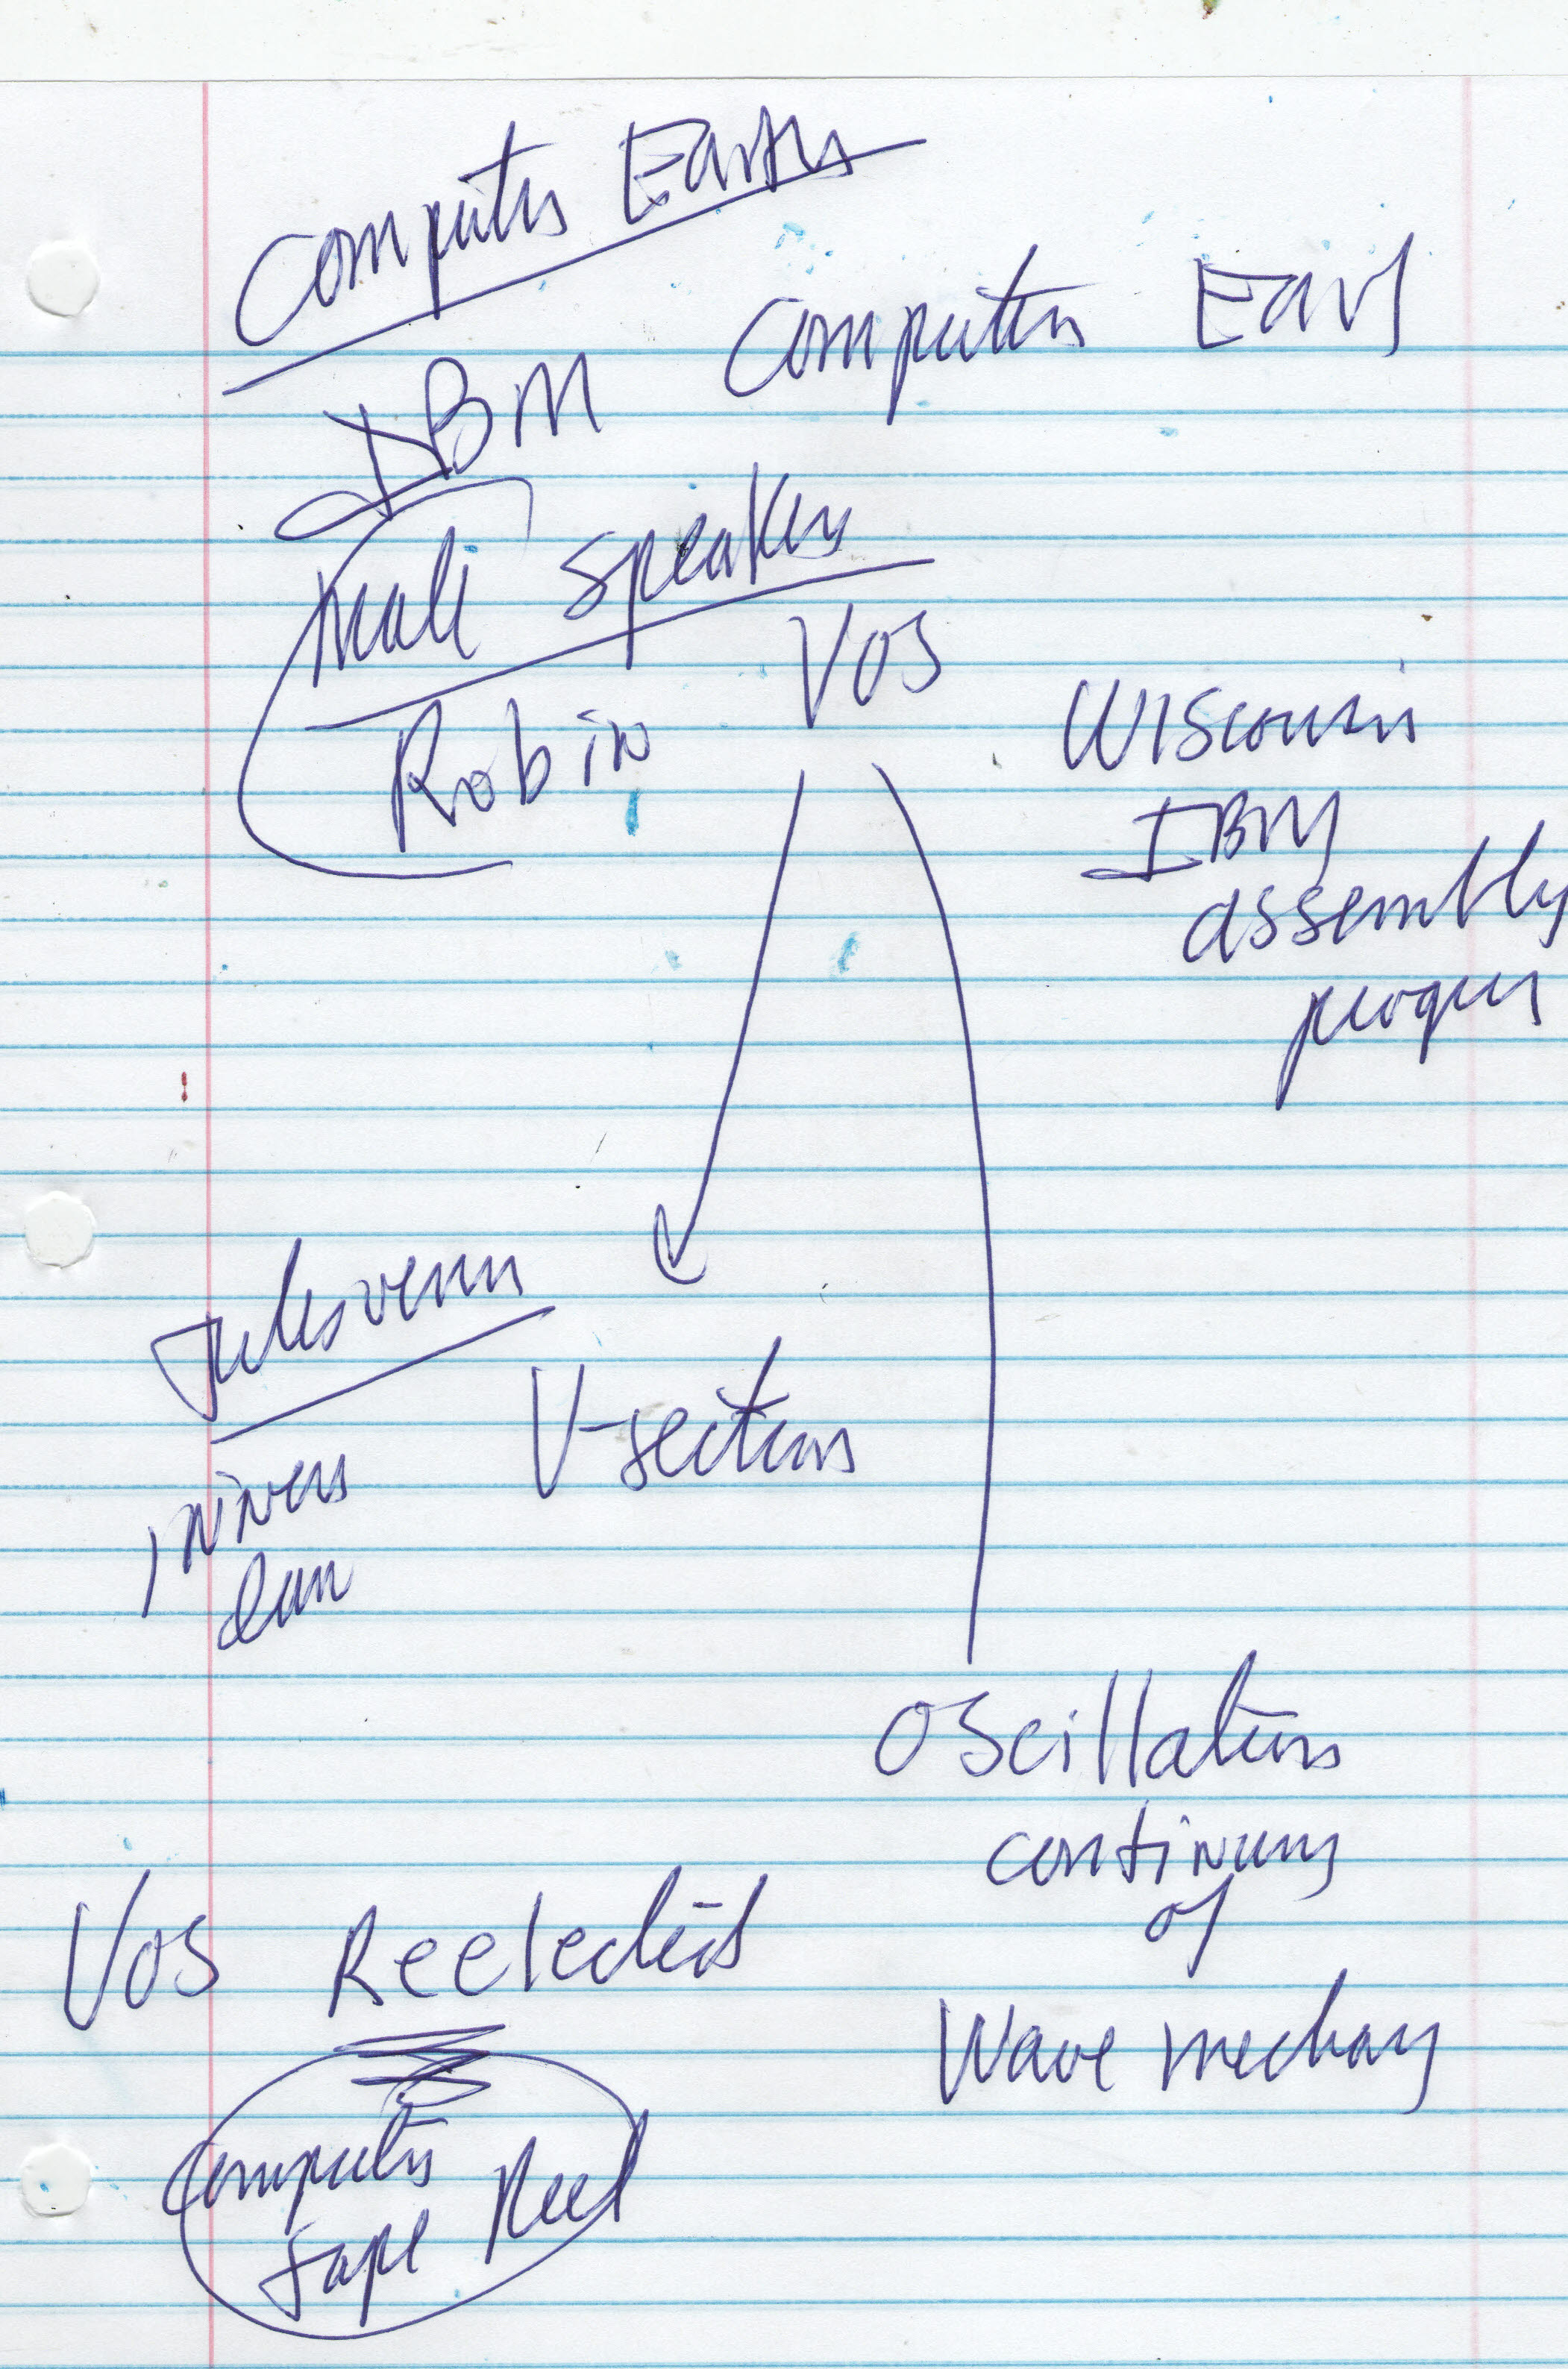 Computer Earth
IBM Computer Earl
Mali Speaker
Robin Vos
Wisconsin
IBM
assembly
Jules venn
V-section
Oscillations
continuum
of
Wave mechan
Vos Reelected
Computer
tape Reel